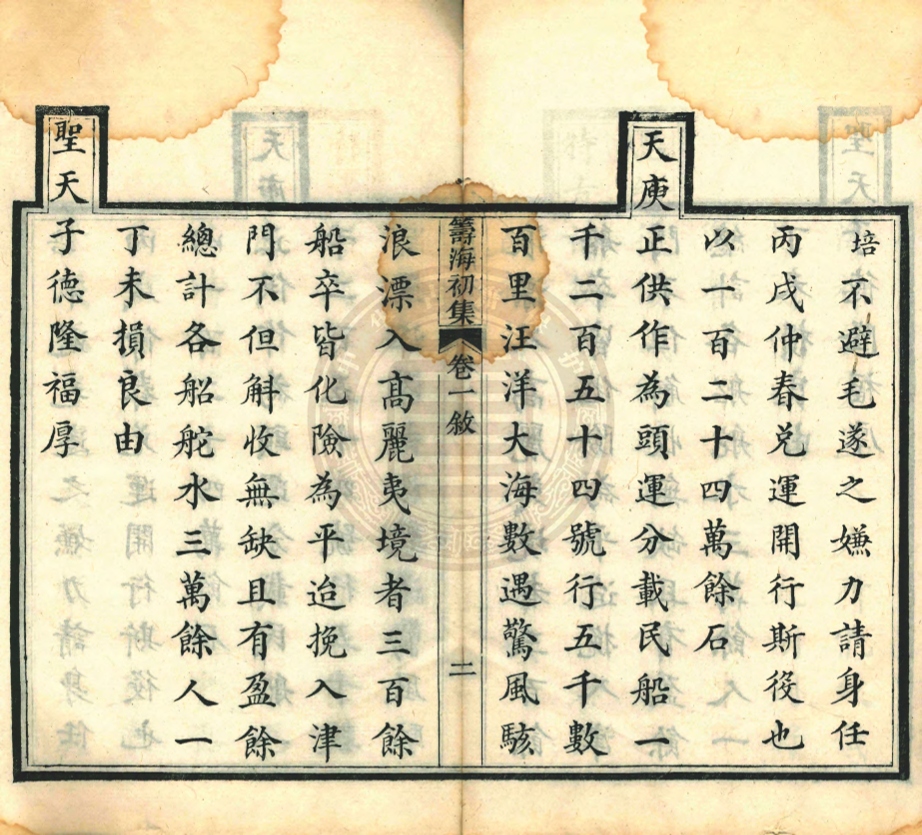 培不避毛遂之嫌力請身任
丙戌仲春兌運開行斯役也
以一百二十四萬餘石
天庾正供作為頭運分載民船一
千二百五十四號行五千數
百里汪洋大海數遇驚風駭
籌海初集 卷一敘 二
浪漂入高麗夷境者三百餘
船卒皆化險為平迨挽入津
門不但斛收無缺且有盈餘
總計各船舵水三萬餘人一
丁未損良由
聖天子德隆福厚